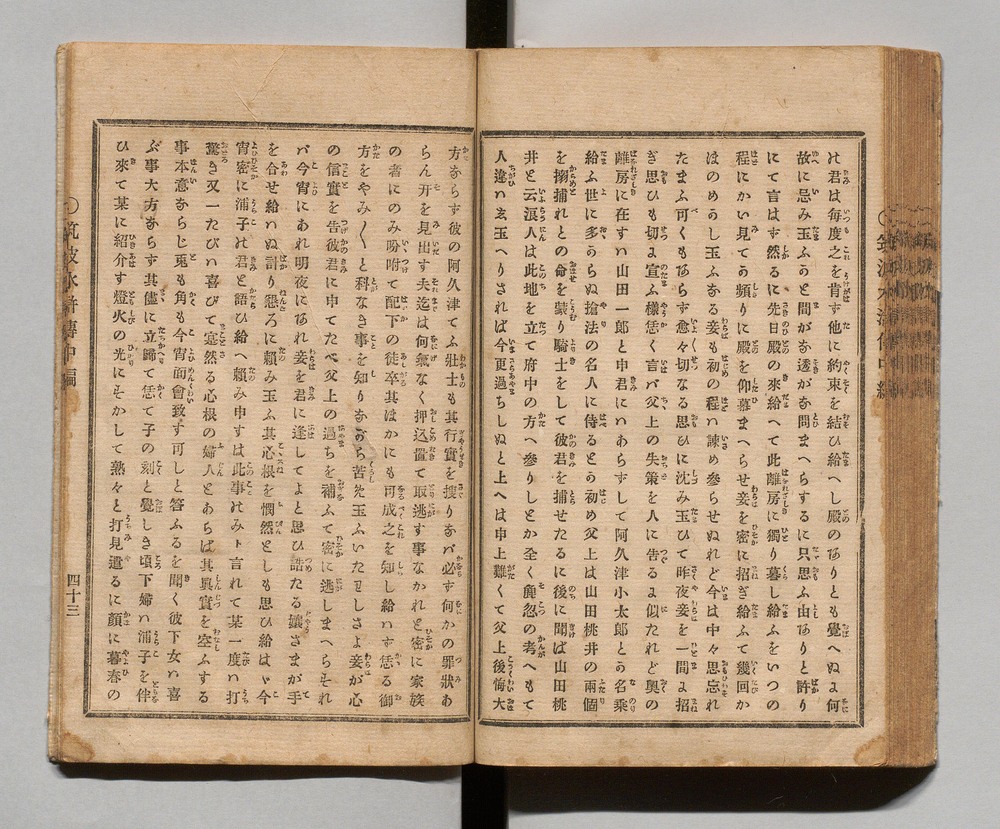 れ君は毎度之を肯す他に約束を結ひ給へし殿のありとも覺へぬよ何
故に忌み玉ふうと問がお透がお問まへらするに只思ふ由ありと許り
にて言はす然るに先日殿の來給へて此離房に獨り暮し給ふをいつの
程にかい見てう頻りに殿を仰慕まへらせ妾を密に招ぎ給ふて幾回か
はのめうし玉ふなる妾も初の程ハ諫め參らせぬれど今は中々思忘れ
たまふ可くもあらす愈々切なる思ひに沈み玉ひて昨夜妾を一間よ招
ぎ思ひも切よ宣ふ樣恁く言バ父上の失策を人に告るよ似たれど奧の
離房に在すハ山田一郎と申君にハあらすして阿久津小太郎とう名乘
給ふ世に多うらぬ搶法の名人に侍るとう初め父上は山田桃井の兩個
を搦捕れとの命を蒙り騎士をして彼君を捕せたるに後に聞ば山田桃
井と云浪人は此地を立て府中の方へ參りしとか全く麁忽の考へもて
人違ハ玄玉へりされば今更過ちしぬと上へは申上難くて父上後悔大
方ならす彼の阿久津てふ壯士も其行實を搜りなバ必す何かの罪狀あ
らん亓を見出す夫迄は何氣なく押込置て取逃す事なかれと密に家族
の者にのみ吩咐て配下の徒卒其ほかにも可成之を知し給ハす恁る御
方をやみ〱と科なき事を知りながら苦た玉ふいたましさよ妾が心
の信實を告彼君に申てたべ父上の過ちを補ふて密に逃しまへらされ
バ今宵にあれ明夜にあれ妾を君に逢してよと思ひ詰たる孃さまが手
を合せ給ハぬ計り懇ろに賴み玉ふ其心根を憫然としも思ひ給はゞ今
宵密に浦子れ君と語ひ給へ賴み申すは此事れみト言れて某一度ハ打
驚き又一たびハ喜びて寔然る心根の婦人とあらば其眞實を空ふする
事本意ならじ兎も角も今宵面會致す可しと答ふるを聞く彼下女ハ喜
ぶ事大方ならす其儘に立歸て恁て子の刻と覺しき頃下婦ハ浦子を伴
ひ來て某に紹介す燈火の光にそかして熟々と打見遣るに顏に暮春の
〇筑波水滸傳中編
四十三